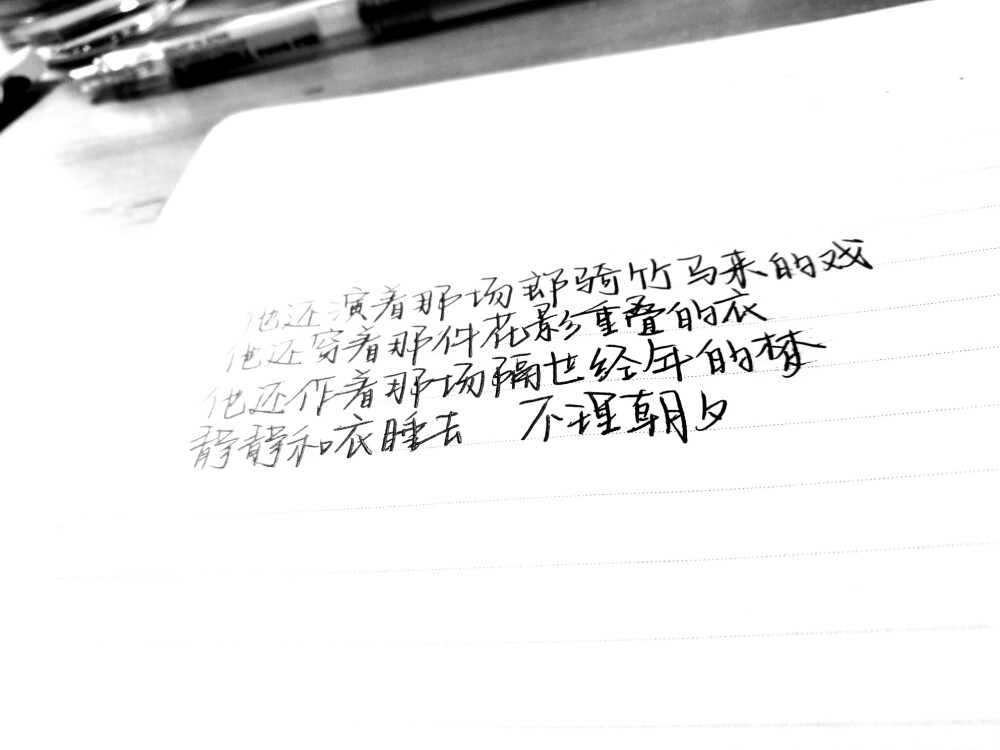 他还演着那场郎骑竹马来的戏
他还穿着那件花影重叠的衣
他还作着那场隔世经年的梦
静静和衣睡去 不理朝夕